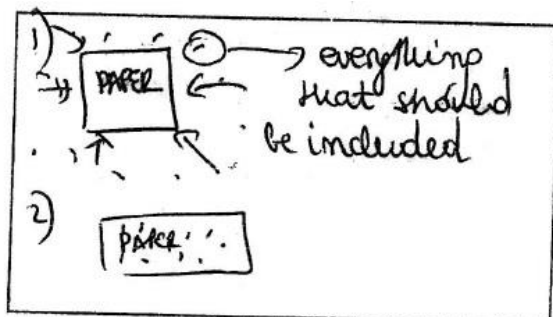 1)
PAPER
everything
that should
be included
2)
PAPER